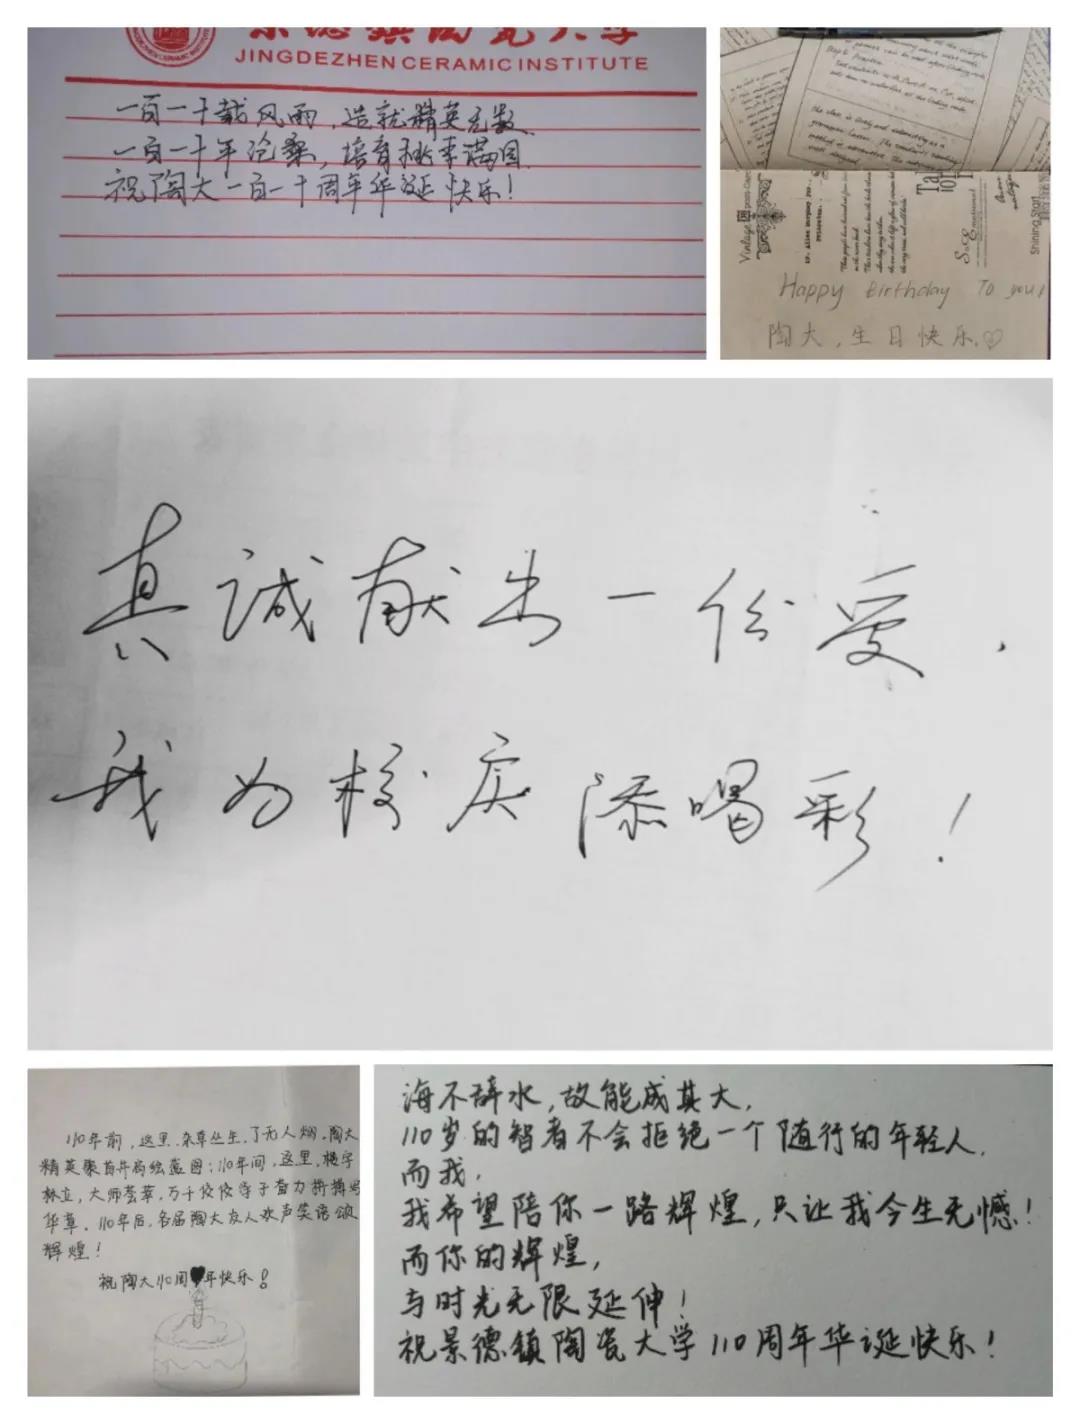 景德镇陶瓷大学
JINGDEZHEN CERAMIC INSTITUTE
一百一十载风雨，造就精英无数
一百一十年沧桑，培育桃李满园
祝陶大一百一十周年华诞快乐！
Vintage
Shining Start
Happy Birthday To you!
陶大，生日快乐
真诚献出一份爱，
我为校庆添喝彩！
110年前，这里，杂草丛生，了无人烟，陶大
精英聚首共商绘蓝图；110年间，这里，楼宇
林立，大师荟萃，万千佼佼学子奋力拼搏写
华章，110年后，各届陶大友人欢声笑语颂
辉煌！
祝陶大110周年快乐！
海不辞水，故能成其大，
110岁的智者不会拒绝一个随行的年轻人，
而我，
我希望陪你一路辉煌，只让我今生无憾！
而你的辉煌，
与时光无限延伸！
祝景德镇陶瓷大学110周年华诞快乐！